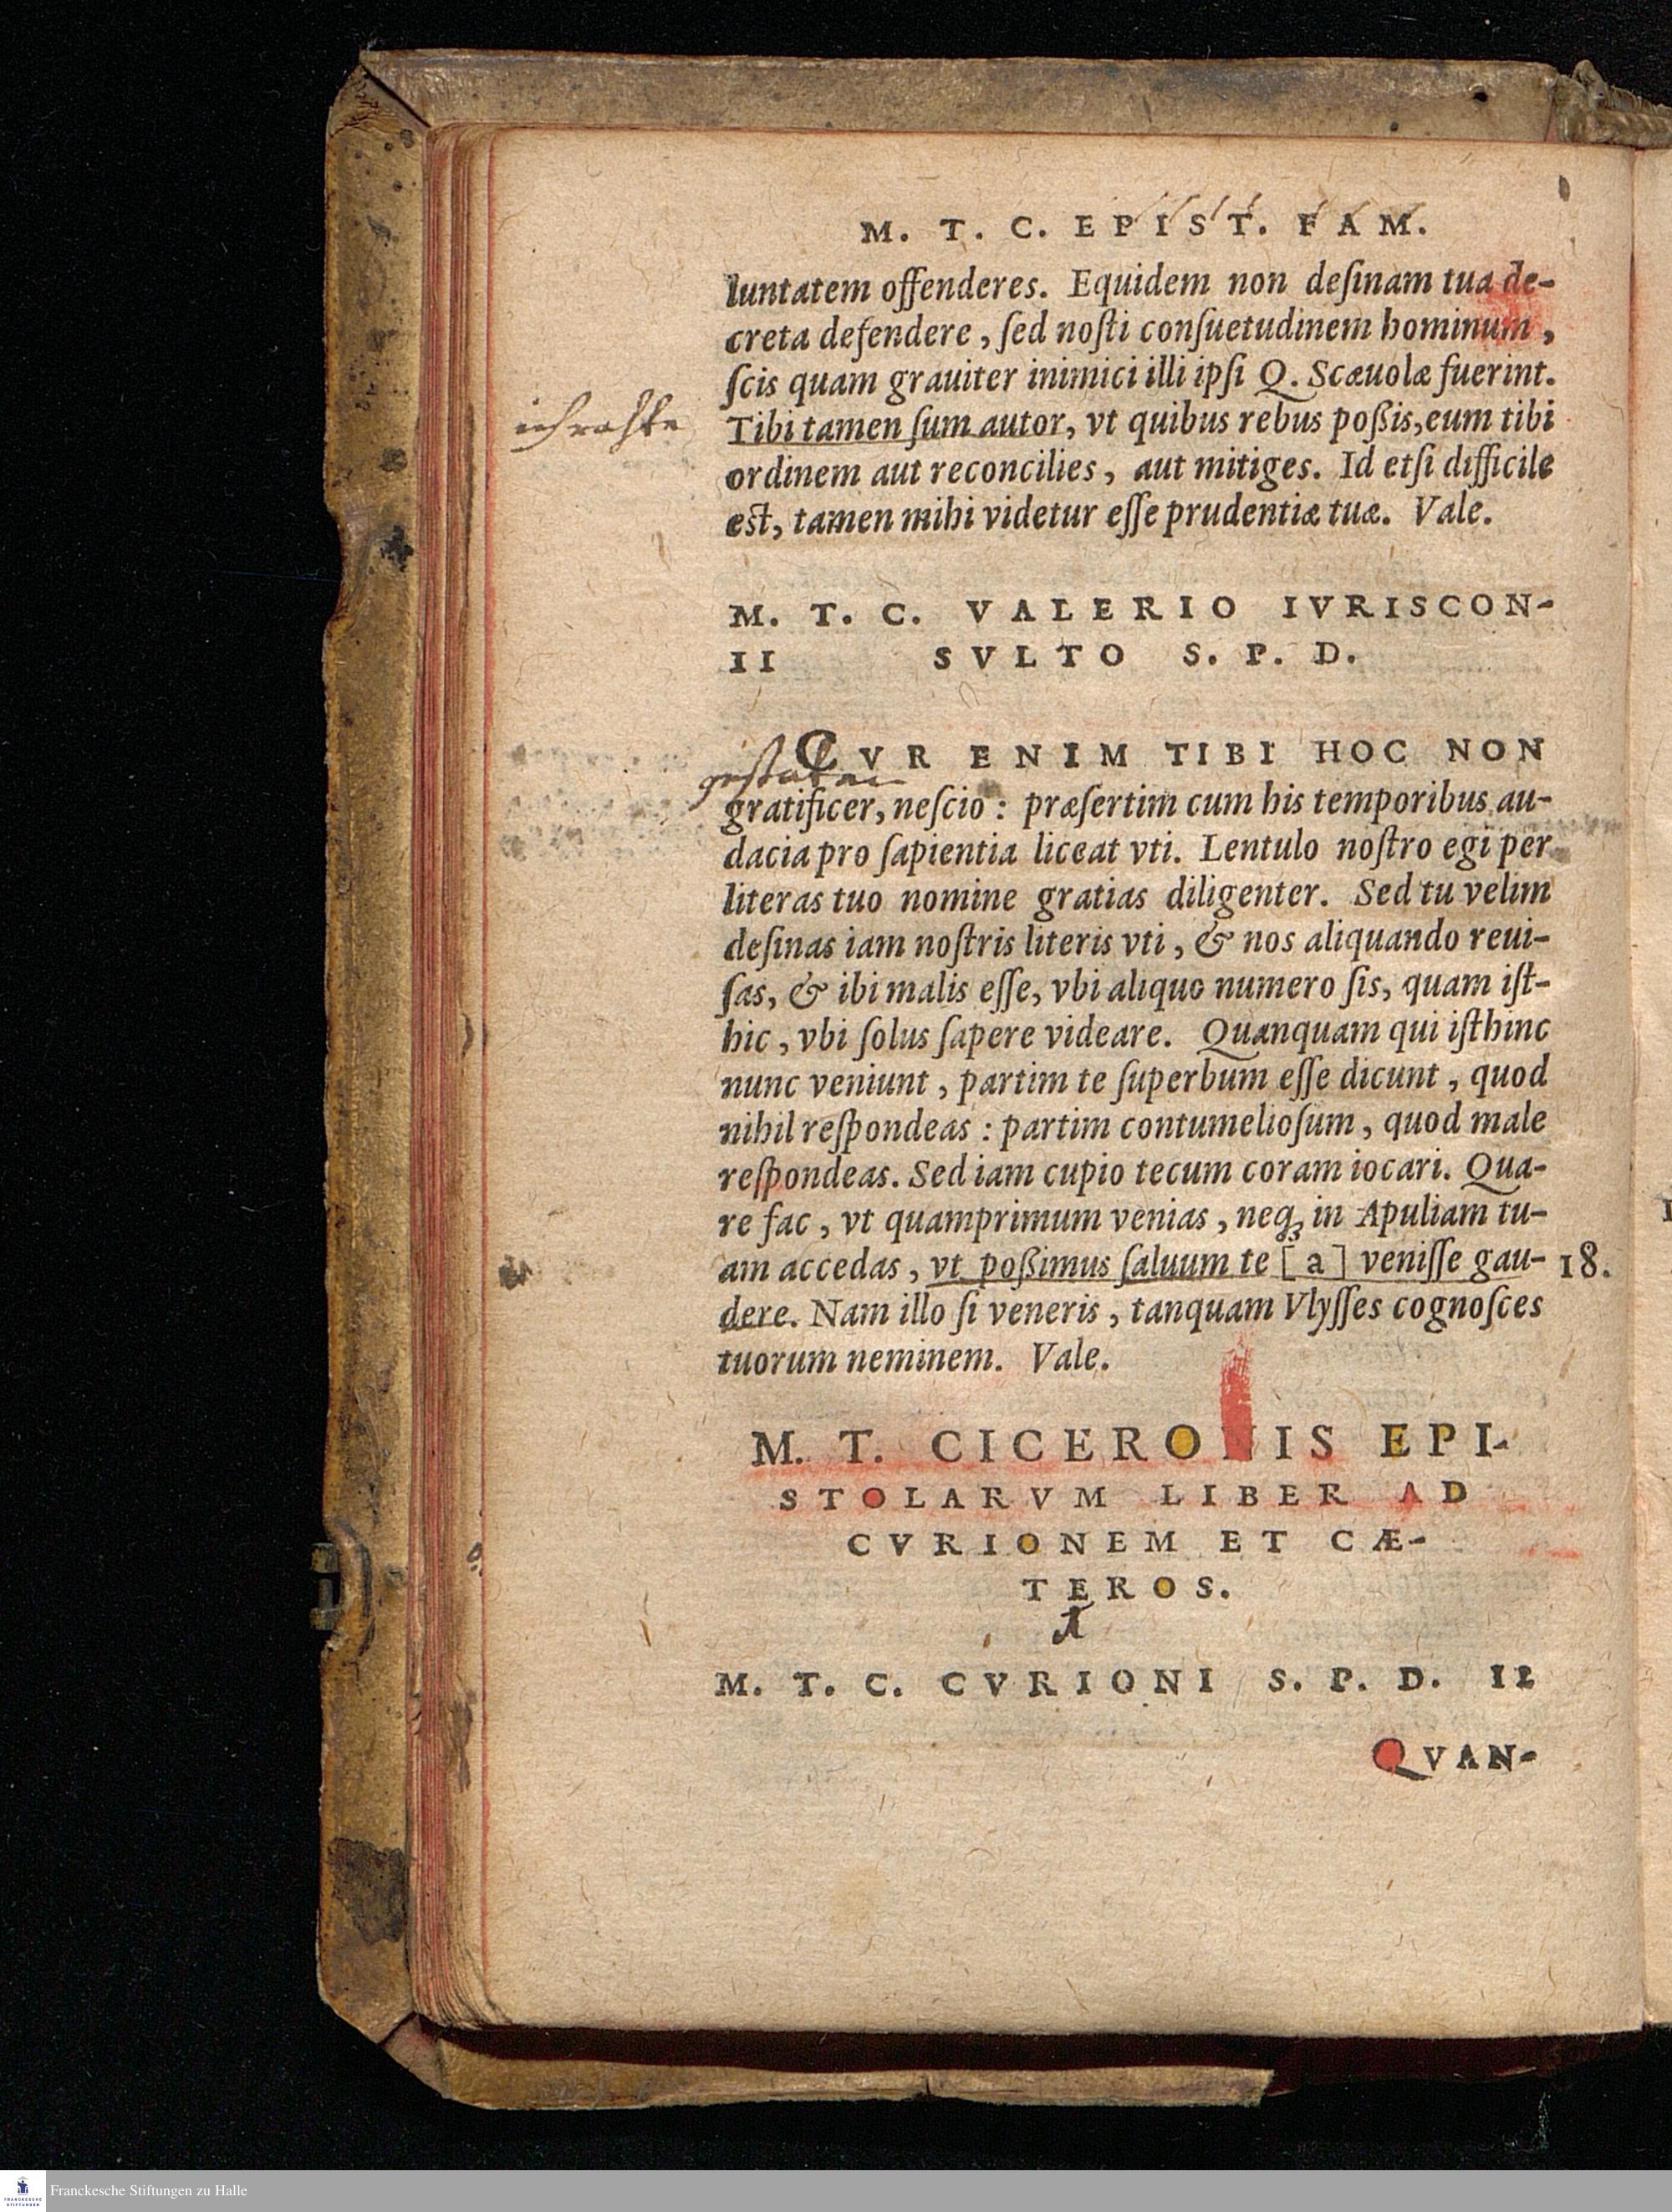 M. T. C. EPIST. FAM.
luntatem offenderes. Equidem non deſinam tua de-
creta defendere, ſed noſti conſuetudinem hominum,
ſcis quam grauiter inimici illi ipſi Q. Scæuolæ fuerint.
ich rahte
Tibi tamen ſum autor, vt quibus rebus poßis, eum tibi
ordinem aut reconcilies, aut mitiges. Id etſi difficile
est, tamen mihi videtur eſſe prudentiæ tuæ. Vale.
M. T. C. VALERIO IVRISCON-
II SVLTO S. P. D.
CVR ENIM TIBI HOC NON
gratificer, neſcio: præſertim cum his temporibus au-
dacia pro ſapientia liceat vti. Lentulo noſtro egi per
literas tuo nomine gratias diligenter. Sed tu velim
deſinas iam noſtris literis vti, & nos aliquando reui-
ſas, & ibi malis eſſe, vbi aliquo numero ſis, quam iſt-
hic, vbi ſolus ſapere videare. Quanquam qui iſthinc
nunc veniunt, partim te ſuperbum eſſe dicunt, quod
nihil reſpondeas: partim contumelioſum, quod male
reſpondeas. Sed iam cupio tecum coram iocari. Qua-
re fac, vt quamprimum venias, neq; in Apuliam tu-
am accedas, vt poßimus ſaluum te [a] veniſſe gau- 18.
dere. Nam illo ſi veneris, tanquam Vlyſſes cognoſces
tuorum neminem. Vale.
M. T. CICERONIS EPI-
STOLARVM LIBER AD
CVRIONEM ET CÆ-
TEROS.
M. T. C. CVRIONI S. P. D. II
QVAN-
Franckesche Stiftungen zu Halle